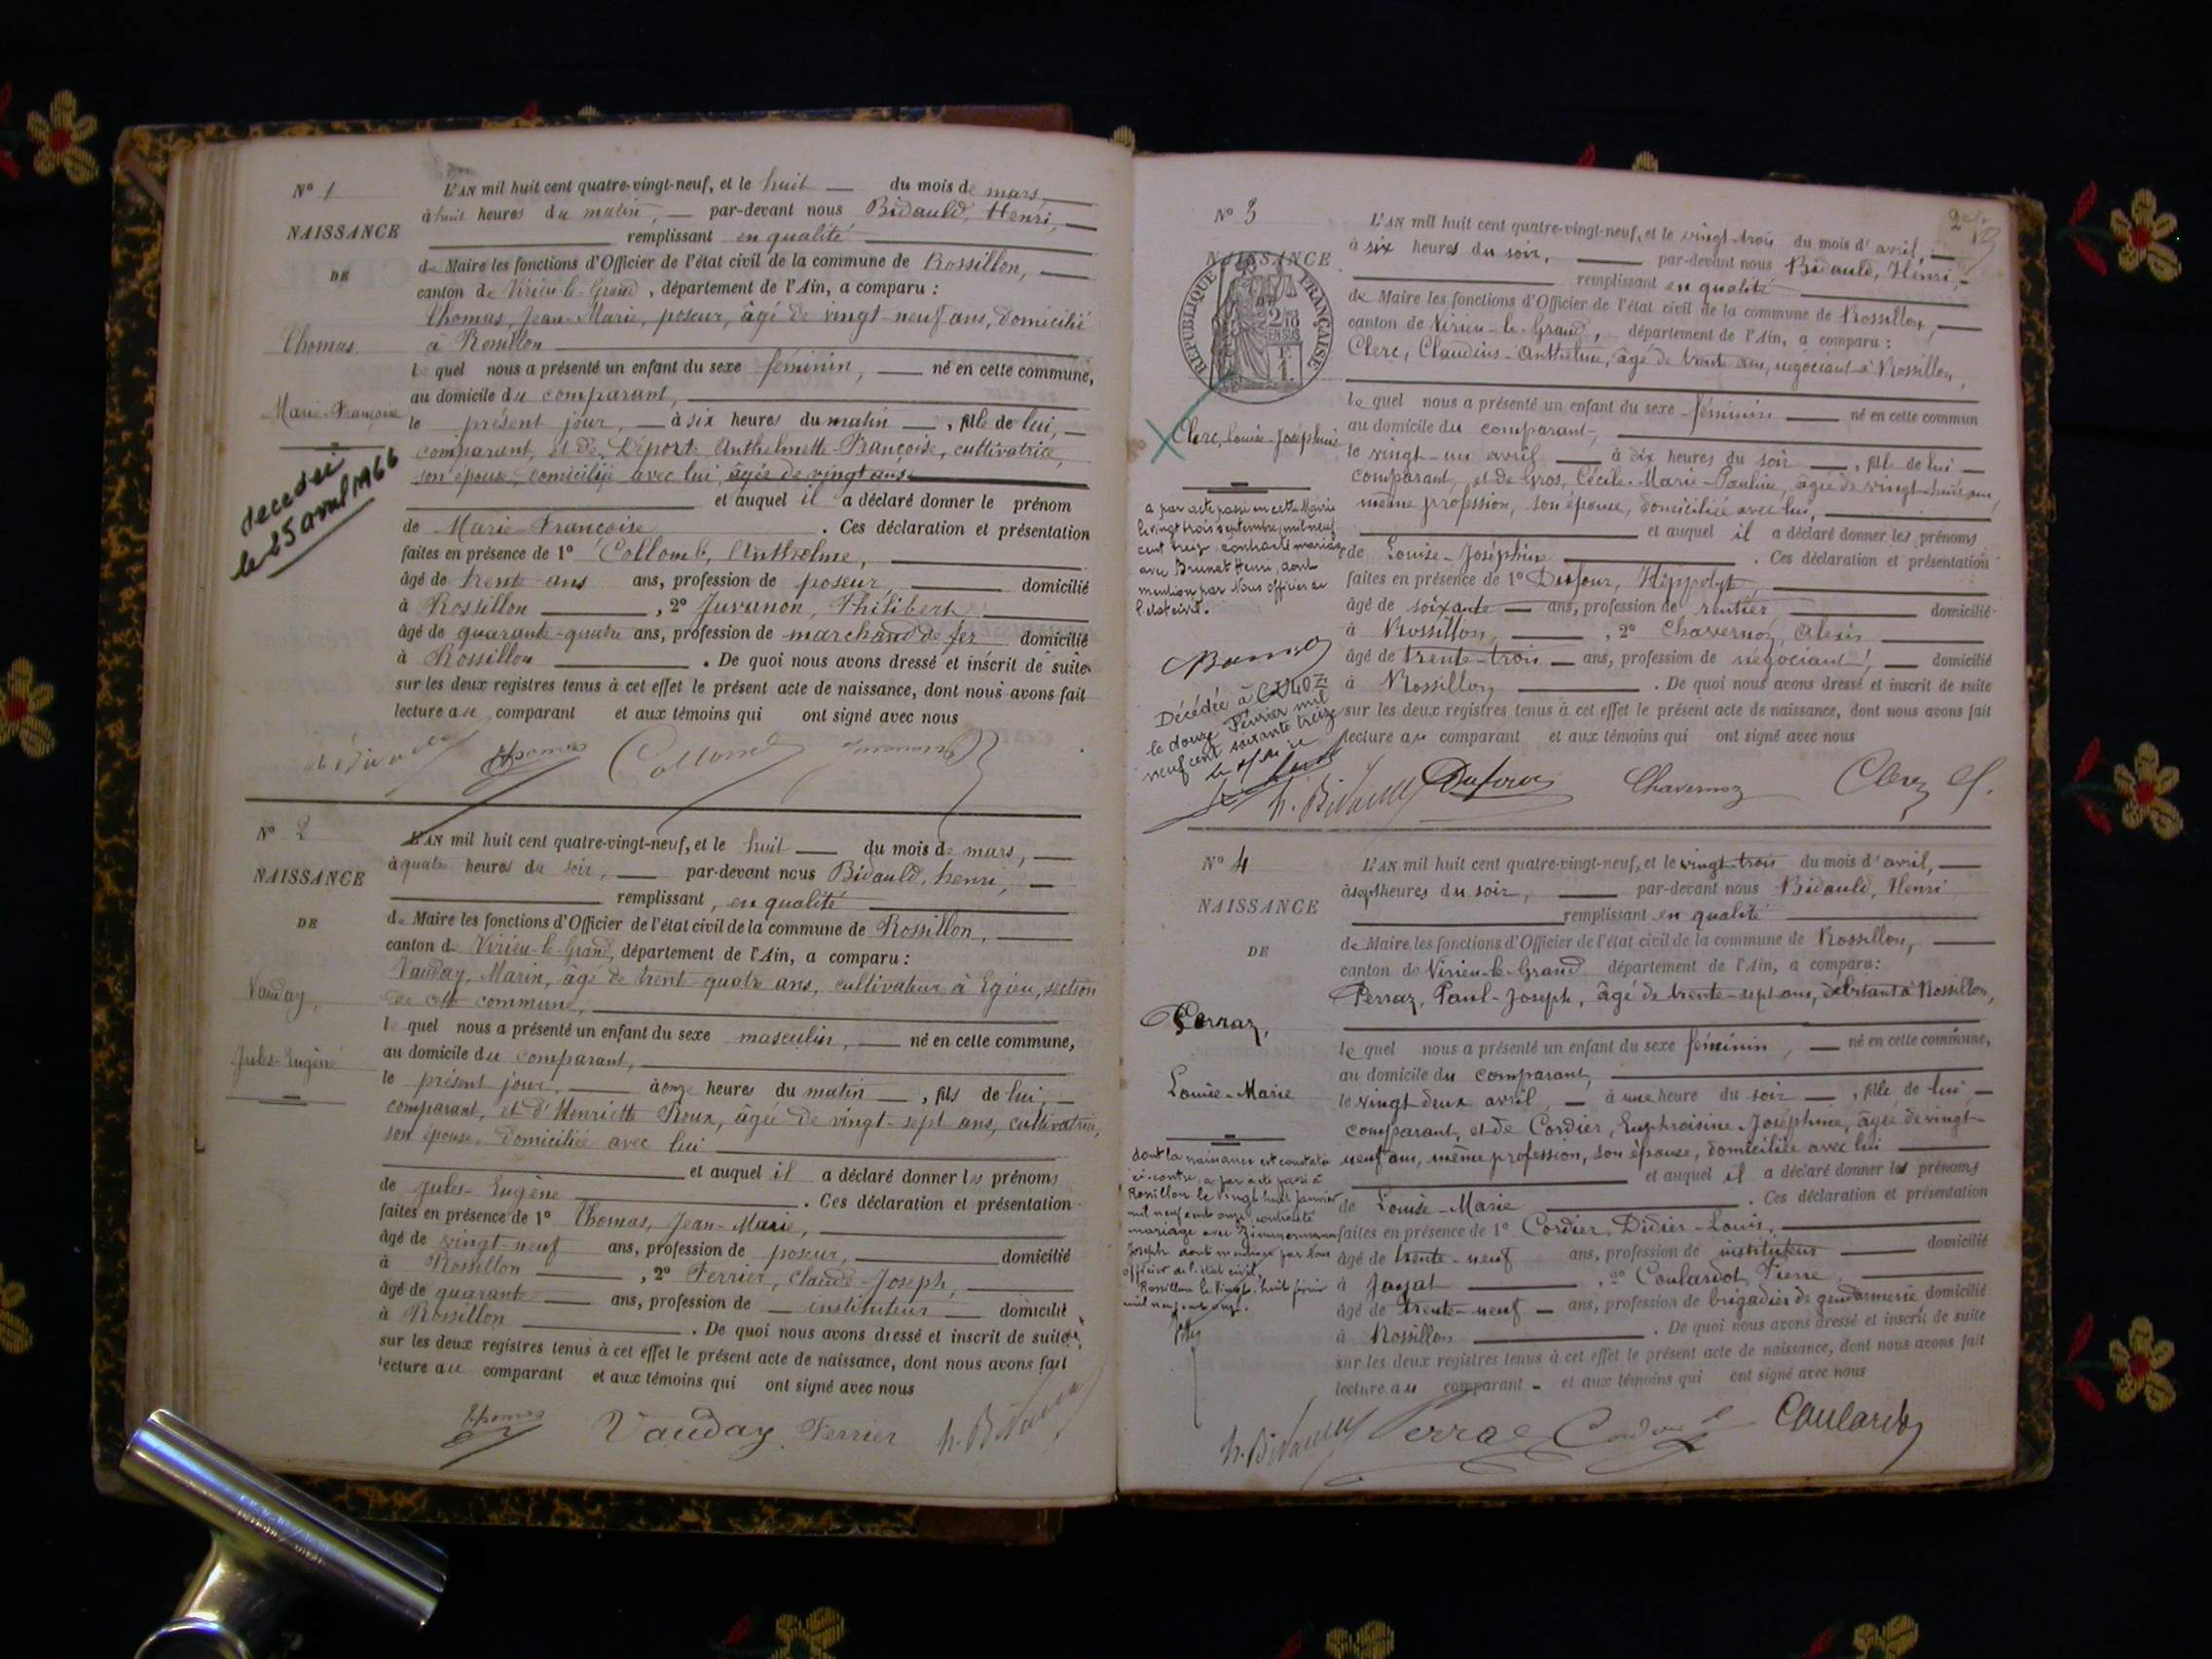 N° 1
NAISSANCE
DE
Thomas
Marie-Françoise
decedée
le 25 avril 1966
L'AN mil huit cent quatre-vingt-neuf, et le huit du mois de mars,
à huit heures du matin, par-devant nous Bidauld, Henri,
remplissant en qualité
de Maire les fonctions d'Officier de l'état civil de la commune de Rossillon,
canton de Virieu-le-Grand, département de l'Ain, a comparu :
Thomas, Jean-Marie, poseur, âgé de vingt-neuf ans, domicilié
à Rossillon
lequel nous a présenté un enfant du sexe féminin, né en cette commune,
au domicile du comparant,
le présent jour, à six heures du matin, fille de lui,
comparant, et de Déporte, Anthelmette-Françoise, cultivatrice,
son épouse, domiciliée avec lui, âgée de vingt ans
et auquel il a déclaré donner le prénom
de Marie-Françoise. Ces déclaration et présentation
faites en présence de 1° Collomb, Anthelme,
âgé de trente ans ans, profession de poseur, domicilié
à Rossillon, 2° Juvanon, Philibert,
âgé de quarante-quatre ans, profession de marchand de fer domicilié
à Rossillon. De quoi nous avons dressé et inscrit de suite
sur les deux registres tenus à cet effet le présent acte de naissance, dont nous avons fait
lecture au comparant et aux témoins qui ont signé avec nous
Thomas Collomb
N° 2
NAISSANCE
DE
Vauday,
Jules-Eugène
L'AN mil huit cent quatre-vingt-neuf, et le huit du mois de mars,
à quatre heures du soir, par-devant nous Bidauld, henri,
remplissant, en qualité
de Maire les fonctions d'Officier de l'état civil de la commune de Rossillon,
canton de Virieu-le-Grand, département de l'Ain, a comparu :
Vauday, Marin, âgé de trent-quatre ans, cultivateur à Egieu, section
de cette commune,
lequel nous a présenté un enfant du sexe masculin, né en cette commune,
au domicile du comparant,
le présent jour, à onze heures du matin, fils de lui,
comparant, et d'Henriette Roux, âgée de vingt-sept ans, cultivatrice,
son épouse, domiciliée avec lui
et auquel il a déclaré donner les prénoms
de Jules-Eugène. Ces déclaration et présentation
faites en présence de 1° Thomas, Jean-Marie,
âgé de vingt-neuf ans, profession de poseur, domicilié
à Rossillon, 2° Ferrier, Claude-Joseph,
âgé de quarante ans, profession de instituteur domicilié
à Rossillon. De quoi nous avons dressé et inscrit de suite
sur les deux registres tenus à cet effet le présent acte de naissance, dont nous avons fait
lecture au comparant et aux témoins qui ont signé avec nous
Thomas Vauday Ferrier h. Bidauld
N° 3
NAISSANCE
RÉPUBLIQUE FRANÇAISE
Clerc, Louise-Joséphine
a par acte passé en cette Mairie
le vingt trois septembre mil neuf
cent treize contracté mariage
avec Brunet Henri, dont
mention par Nous officier de
l'état civil.
Décédée à
le douze Février mil
neuf cent soixante treize
L'AN mil huit cent quatre-vingt-neuf, et le vingt-trois du mois d'avril,
à six heures du soir, par-devant nous Bidauld, Henri,
remplissant en qualité
de Maire les fonctions d'Officier de l'état civil de la commune de Rossillon,
canton de Virieu-le-Grand, département de l'Ain, a comparu :
Clerc, Claudius-Anthelme, âgé de trente ans, négociant à Rossillon,
lequel nous a présenté un enfant du sexe féminin né en cette commun
au domicile du comparant,
le vingt-un avril à dix heures du soir, fille de lui
comparant, et de Gros, Cécile-Marie-Pauline, âgée de vingt-huit ans,
même profession, son épouse, domiciliée avec lui,
et auquel il a déclaré donner les prénoms
de Louise-Joséphine. Ces déclaration et présentation
faites en présence de 1° Dufour, Hippolyte,
âgé de soixante ans, profession de rentier domicilié
à Rossillon, 2° Chavernoz, Alexis
âgé de trente-trois ans, profession de négociant, domicilié
à Rossillon. De quoi nous avons dressé et inscrit de suite
sur les deux registres tenus à cet effet le présent acte de naissance, dont nous avons fait
lecture au comparant et aux témoins qui ont signé avec nous
h. Bidauld Dufour Chavernoz Clerc
N° 4
NAISSANCE
DE
Perraz,
Louise-Marie
dont la naissance est constatée
ci-contre, a par acte passé à
Rossillon le vingt huit janvier
mil neuf cent onze, contracté
mariage avec Zimmermann
Joseph dont mention par Nous
officier de l'état civil.
Rossillon le vingt-huit
mil neuf cent onze.
L'AN mil huit cent quatre-vingt-neuf, et le vingt-trois du mois d'avril,
à sept heures du soir, par-devant nous Bidauld, Henri
remplissant en qualité
de Maire les fonctions d'Officier de l'état civil de la commune de Rossillon,
canton de Virieu-le-Grand département de l'Ain, a comparu :
Perraz, Paul-Joseph, âgé de trente-sept ans, débitant à Rossillon,
lequel nous a présenté un enfant du sexe féminin, né en cette commune,
au domicile du comparant,
le vingt deux avril, à une heure du soir, fille de lui,
comparant, et de Cordier, Euphroisine-Joséphine, âgée de vingt-
neuf ans, même profession, son épouse, domiciliée avec lui
et auquel il a déclaré donner les prénoms
de Louise-Marie. Ces déclaration et présentation
faites en présence de 1° Cordier, Didier-Louis,
âgé de trente-neuf ans, profession de instituteur domicilié
à Jayat, 2° Coulardot, Pierre,
âgé de trente-neuf ans, profession de brigadier de gendarmerie domicilié
à Rossillon. De quoi nous avons dressé et inscrit de suite
sur les deux registres tenus à cet effet le présent acte de naissance, dont nous avons fait
lecture au comparant et aux témoins qui ont signé avec nous
h. Bidauld Perraz Coulardot